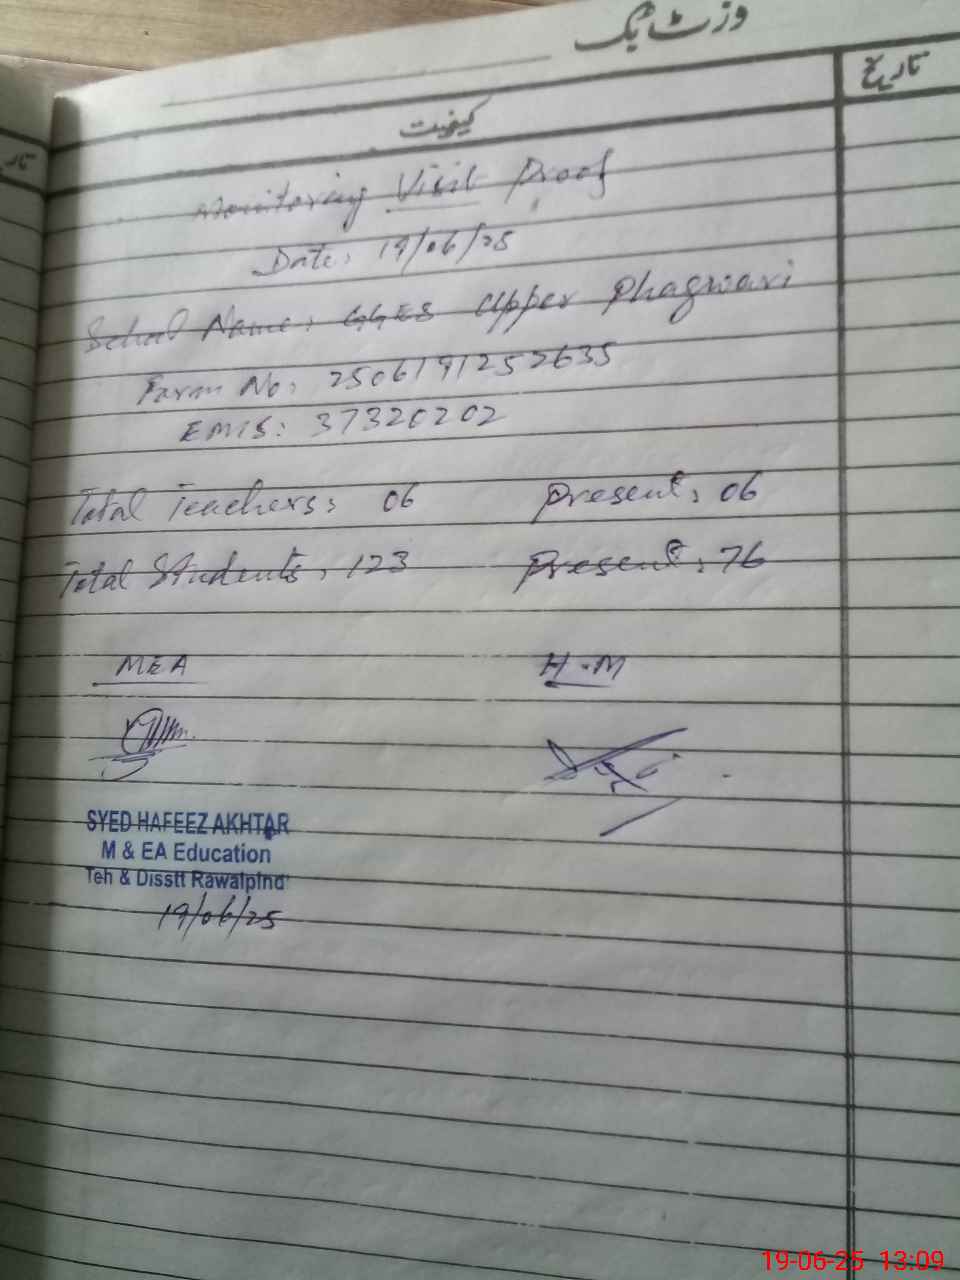 وزٹ بک
تاریخ
کیفیت
تار
Monitoring Visit Proof
Date: 19/06/25
School Name: GGES Upper Phagwari
Faram No: 2506191252635
EMIS: 37320202
Total Teachers: 06 Present: 06
Total Students: 123 Present: 76
MEA H.M
SYED HAFEEZ AKHTAR
M & EA Education
Teh & Disstt Rawalpind
19/06/25
19-06-25 13:09